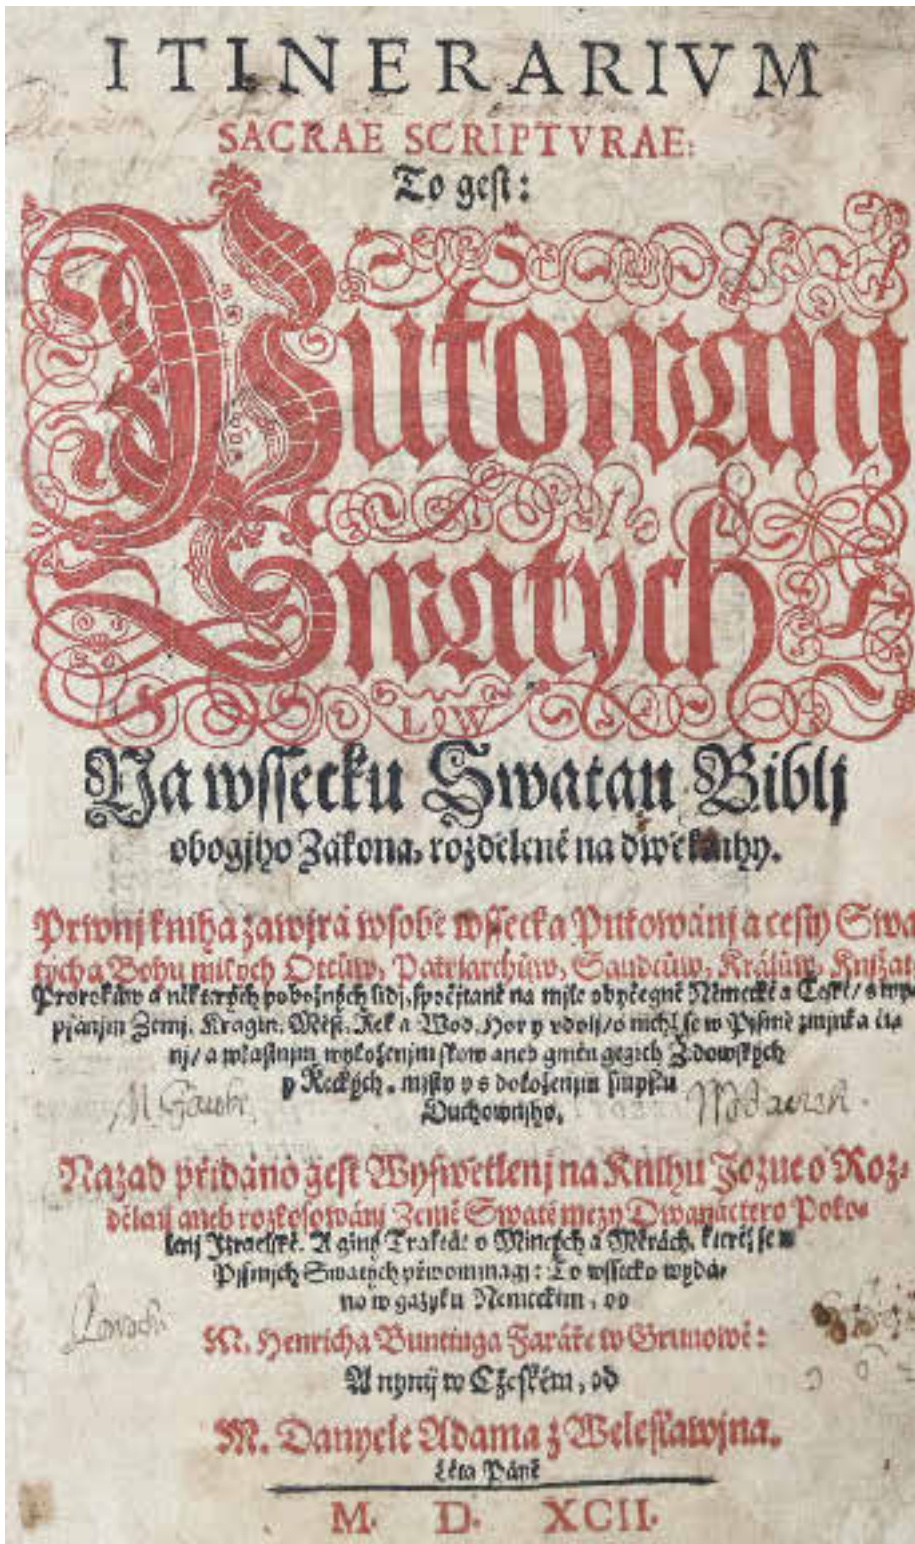 ITINERARIVM
SACRAE SCRIPTVRAE:
To gest:
Putowánj
Swatých
LW
Na wssecku Swatau Biblj
obogjho Zákona, rozdělené na dwě knihy.
Prwnj kniha zawjrá w sobě wssecka Putowánj a cesty Swa-
tých a Bohu milých Otcůw, Patriarchůw, Saudcůw, Králůw, Knjžat,
Prorokůw a některých pobožných lidj, spočjtané na mjle obyčegné Německé a České/ s wy-
psánjm Zemj, Kragin, Měst, Řek a Wod, Hor y vdolj/ o nichž se w Pjsmě zmjnka čj-
nj/ a wlastnjm wyloženjm slow aneb gmen gegich Židowských
y Řeckých, mjsty y s doloženjm smyslu
Duchownjho.
Nazad přidáno gest Wyswětlenj na Knihu Jozue o Roz-
dělenj aneb rozlosowánj Země Swaté mezy Dwanáctero Poko-
lenj Izraelské. A giný Traktát o Mincých a Měrách, kteréž se w
Pjsmjch Swatých připomjnagj: To wssecko wydá-
no w gazyku Německém, od
M. Henricha Buntinga Faráře w Grunowě:
A nynj w Cžeském, od
M. Danyele Adama z Weleslawjna.
Léta Páně
M. D. XCII.